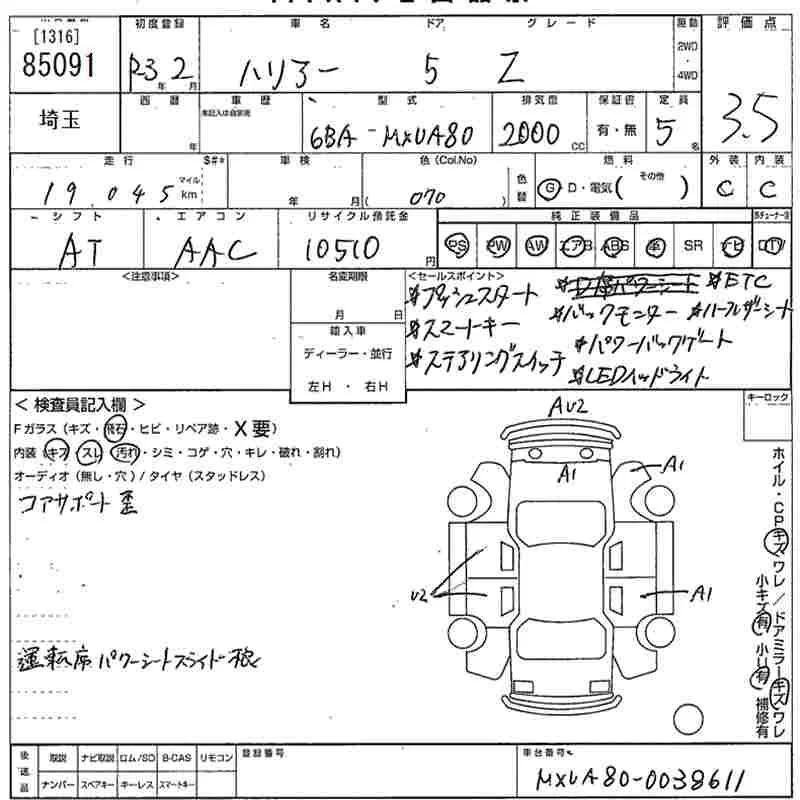 [1316]
85091
初度登録
R3 年 2 月
車名
ハリアー
ドア
5
グレード
Z
駆動
2WD
・
4WD
評価点
3.5
埼玉
西暦
年
車歴
未記入は自家用
型式
6BA-MXUA80
排気量
2000 CC
保証書
有・無
定員
5 名
走行
$#*
マイル
19,045 km
車検
年 月
色(Col.No)
( 070 )
色替
燃料
G・D・電気( その他 )
外装
C
内装
C
シフト
AT
エアコン
AAC
リサイクル預託金
10510 円
純正装備品
PS PW AW エアB ABS 革 SR ナビ TV
<注意事項>
名変期限
月 日
輸入車
ディーラー・並行
左H ・ 右H
<セールスポイント>
#プッシュスタート
#スマートキー
#ステアリングスイッチ
#ETC
#バックモニター #ハーフレザーシート
#パワーバックゲート
#LEDヘッドライト
<検査員記入欄>
Fガラス(キズ・飛石・ヒビ・リペア跡・X要)
内装(キズ・スレ・汚れ・シミ・コゲ・穴・キレ・破れ・割れ)
オーディオ(無し・穴)/タイヤ(スタッドレス)
コアサポート歪
運転席パワーシートスライド
AU2
A1
A1
U2
A1
キーロック
ホイル・CPキズワレ/ドアミラーキズワレ
小キズ有 小U有 補修有
後送品
取説 ナビ取説 ロム/SD B-CAS リモコン
ナンバー スペアキー キーレス スマートキー
登録番号
車台番号
MXUA80-0038611